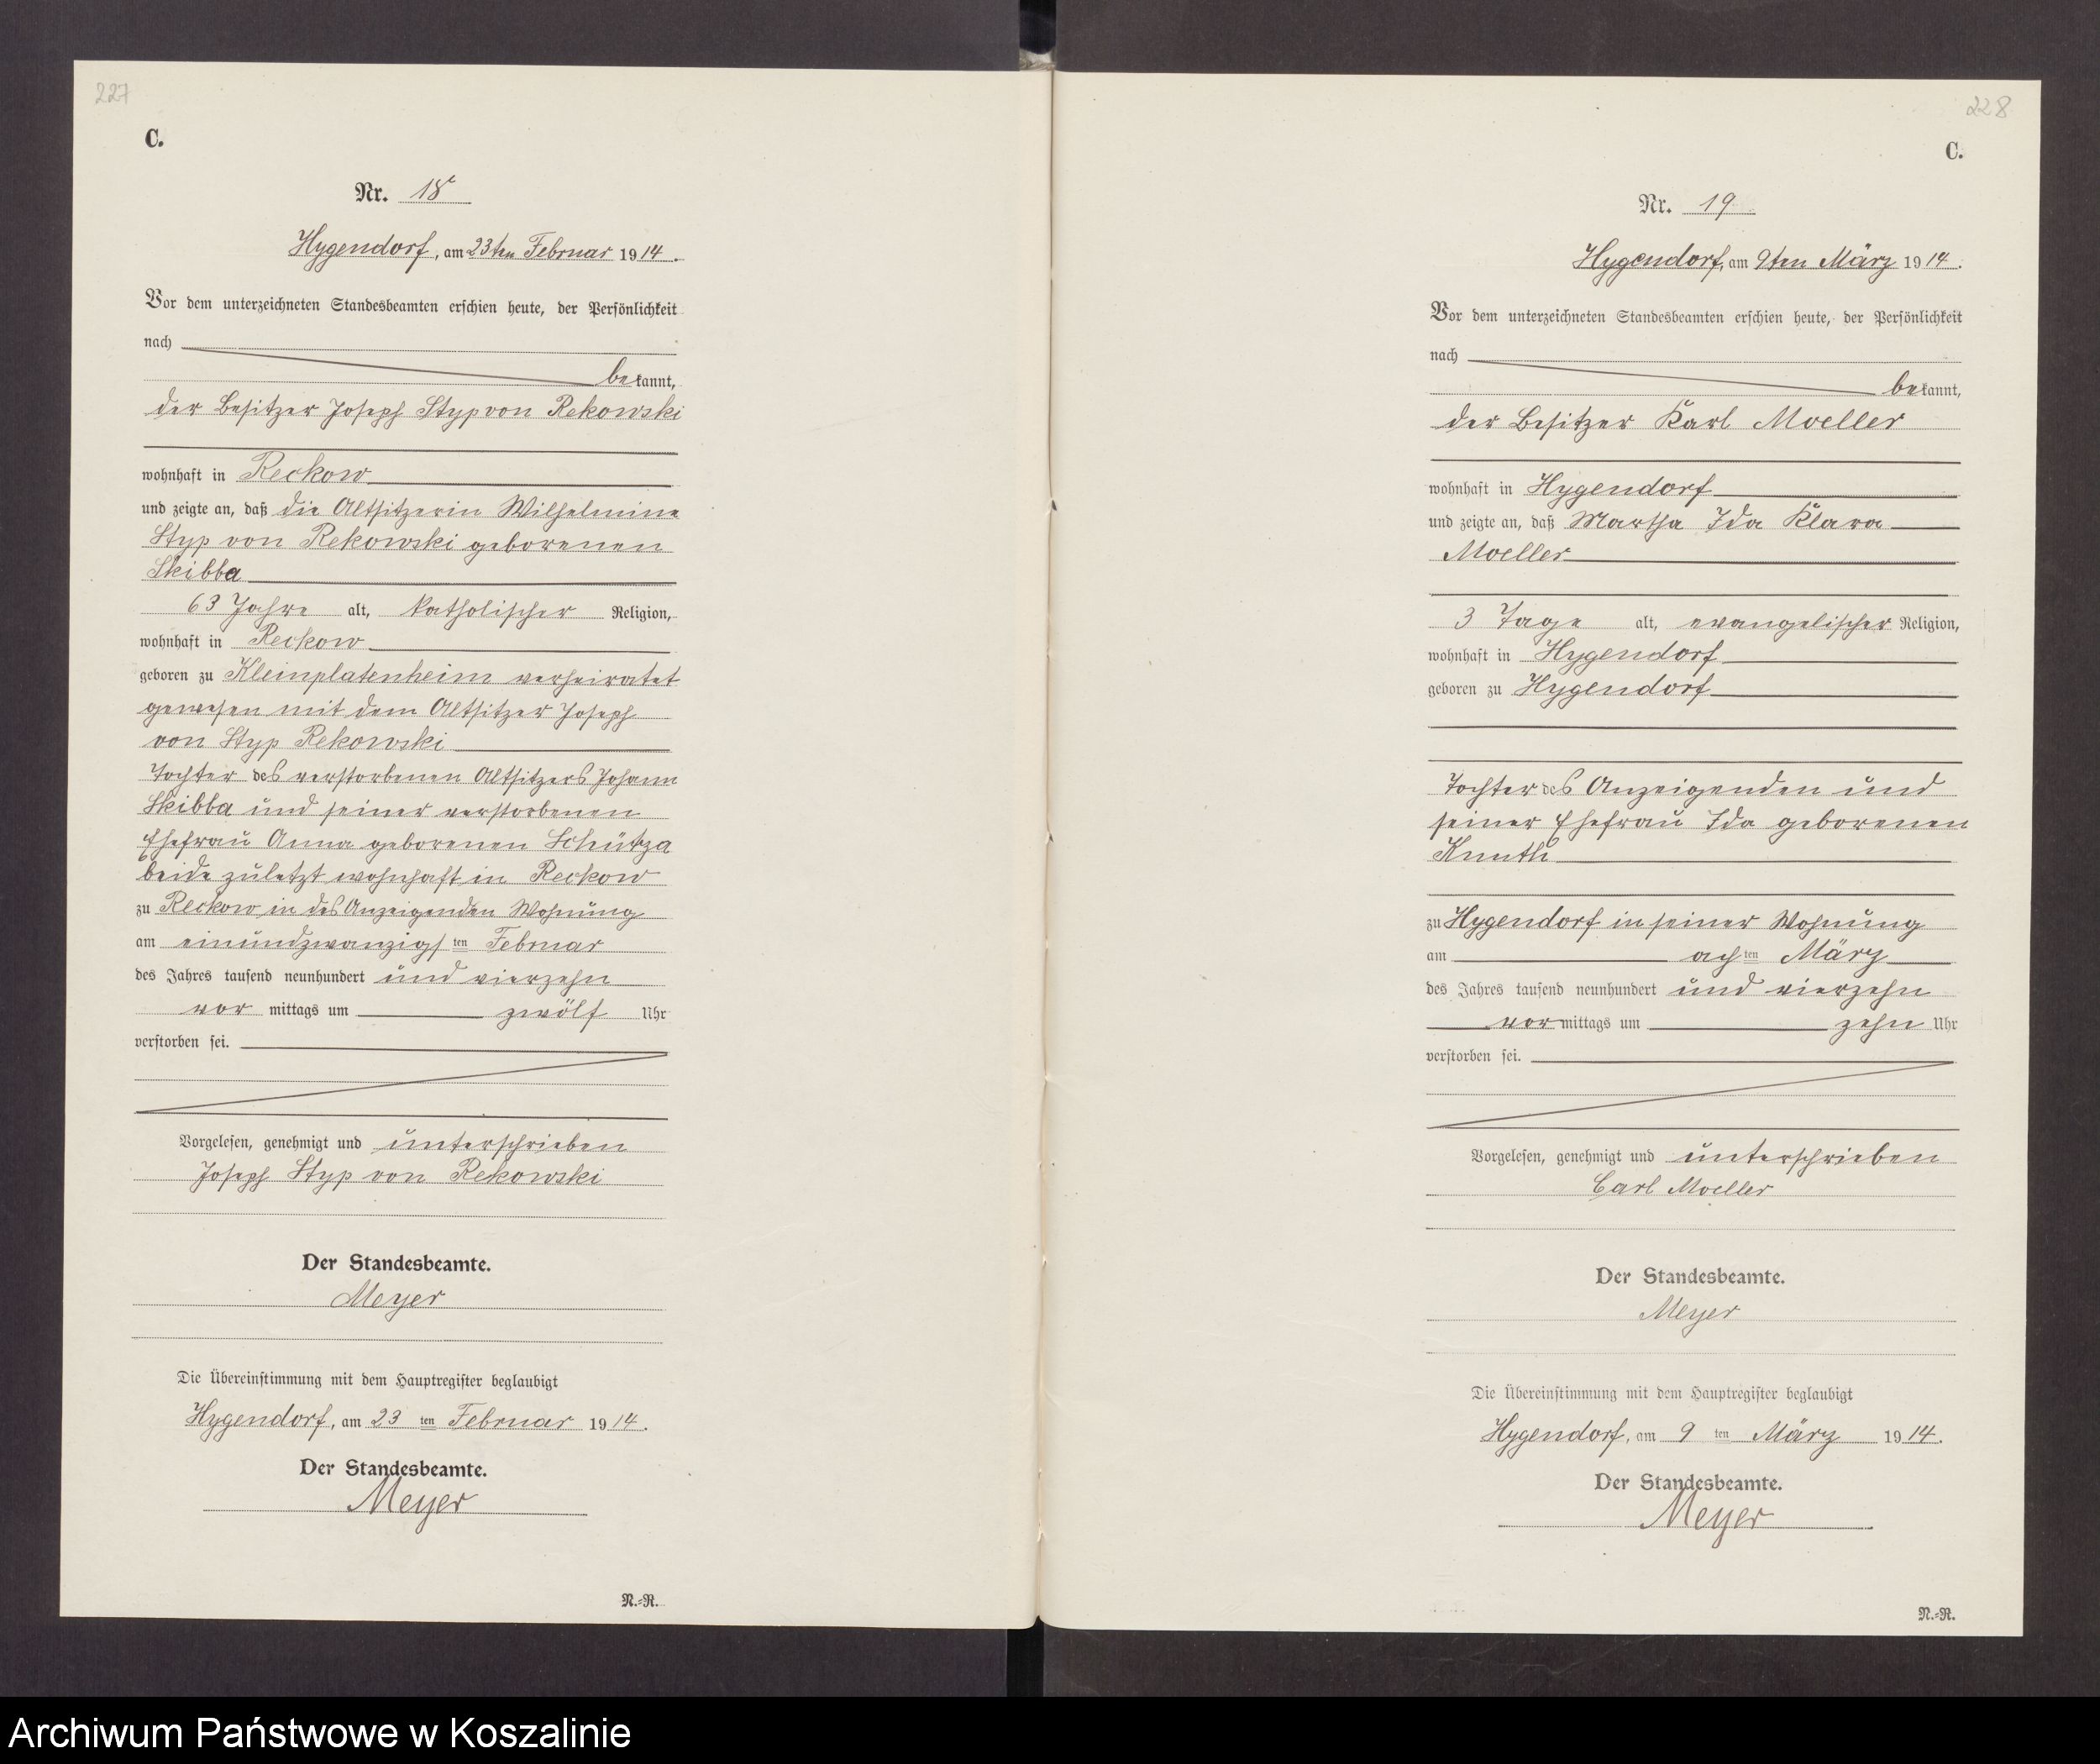 227
C.
Nr. 18
Hygendorf, am 23ten Februar 1914.
Vor dem unterzeichneten Standesbeamten erschien heute, der Persönlichkeit
nach
bekannt,
der Besitzer Joseph Styp von Rekowski
wohnhaft in Reckow
und zeigte an, daß die Altsitzerin Wilhelmine
Styp von Rekowski geborenen
Skibba
63 Jahre alt, katholischer Religion,
wohnhaft in Reckow
geboren zu Kleinplatenheim verheiratet
gewesen mit dem Altsitzer Joseph
von Styp Rekowski
Tochter des verstorbenen Altsitzers Johann
Skibba und seiner verstorbenen
Ehefrau Anna geborenen Schütza
beide zuletzt wohnhaft in Reckow
zu Reckow in des Anzeigenden Wohnung
am einundzwanzigsten Februar
des Jahres tausend neunhundert und vierzehn
vor mittags um zwölf Uhr
verstorben sei.
Vorgelesen, genehmigt und unterschrieben
Joseph Styp von Rekowski
Der Standesbeamte.
Meyer
Die Übereinstimmung mit dem Hauptregister beglaubigt
Hygendorf, am 23 ten Februar 1914.
Der Standesbeamte.
Meyer
N.-R.
228
C.
Nr. 19
Hygendorf, am 9ten März 1914.
Vor dem unterzeichneten Standesbeamten erschien heute, der Persönlichkeit
nach
bekannt,
der Besitzer Karl Moeller
wohnhaft in Hygendorf
und zeigte an, daß Martha Ida Klara
Moeller
3 Tage alt, evangelischer Religion,
wohnhaft in Hygendorf
geboren zu Hygendorf
Tochter des Anzeigenden und
seiner Ehefrau Ida geborenen
Knuth
zu Hygendorf in seiner Wohnung
am achten März
des Jahres tausend neunhundert und vierzehn
vor mittags um zehn Uhr
verstorben sei.
Vorgelesen, genehmigt und unterschrieben
Carl Moeller
Der Standesbeamte.
Meyer
Die Übereinstimmung mit dem Hauptregister beglaubigt
Hygendorf, am 9 ten März 1914.
Der Standesbeamte.
Meyer
N.-R.
Archiwum Państwowe w Koszalinie